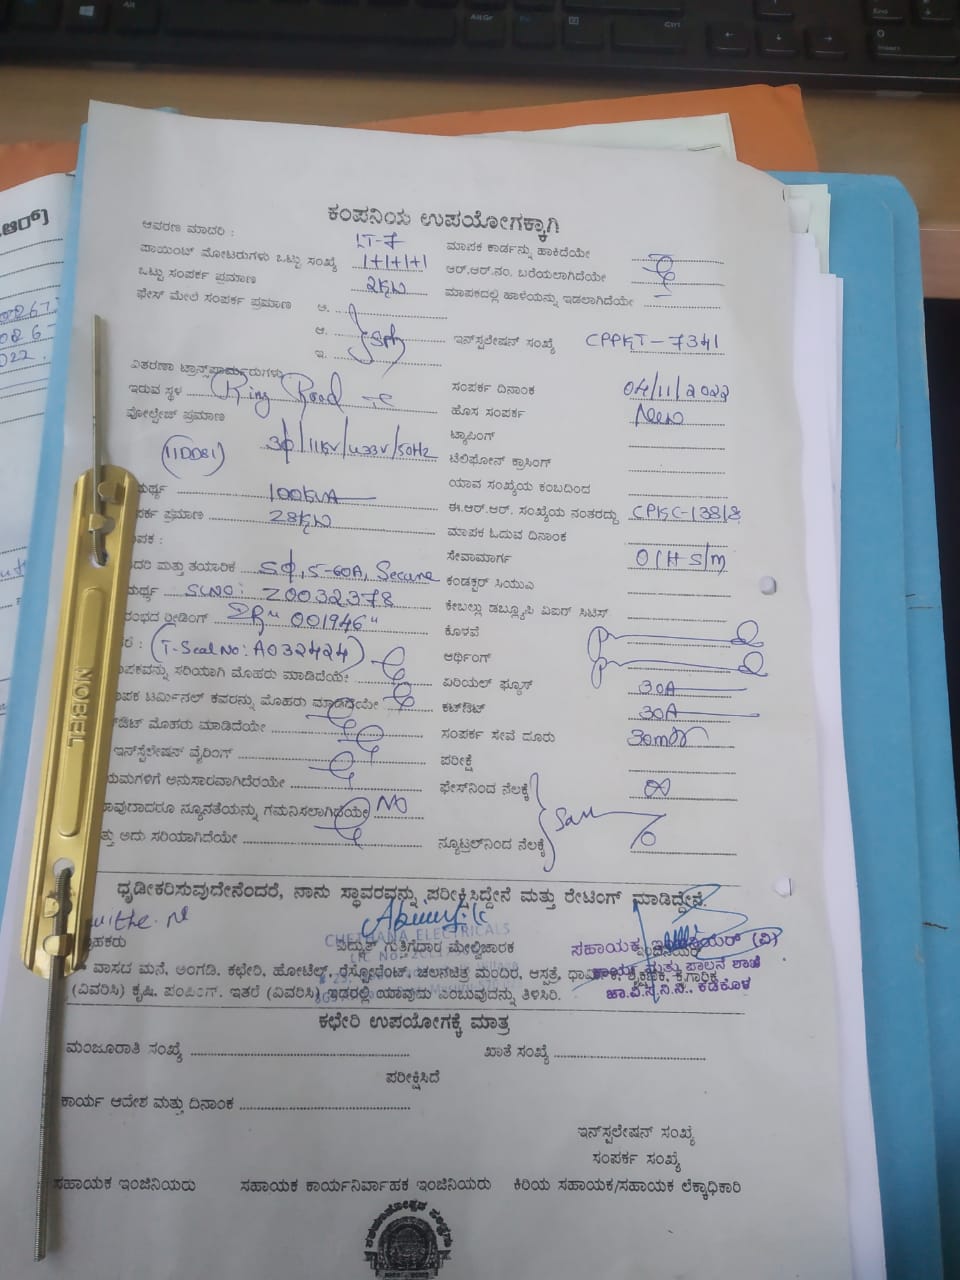 ಕಂಪನಿಯ ಉಪಯೋಗಕ್ಕಾಗಿ
ಆವರಣ ಮಾದರಿ : LT-7 ಮಾಪಕ ಕಾರ್ಡನ್ನು ಹಾಕಿದೆಯೇ
ಪಾಯಿಂಟ್ ಮೋಟರುಗಳು ಒಟ್ಟು ಸಂಖ್ಯೆ 1+1+1+1 ಆರ್.ಆರ್.ನಂ. ಬರೆಯಲಾಗಿದೆಯೇ
ಒಟ್ಟು ಸಂಪರ್ಕ ಪ್ರಮಾಣ 2KW ಮಾಪಕದಲ್ಲಿ ಹಾಳೆಯನ್ನು ಇಡಲಾಗಿದೆಯೇ
ಫೇಸ್ ಮೇಲೆ ಸಂಪರ್ಕ ಪ್ರಮಾಣ ಆ.
ಆ. ಇನ್‌ಸ್ಟಲೇಷನ್ ಸಂಖ್ಯೆ CPPKT-7341
ಇ.
ವಿತರಣಾ ಟ್ರಾನ್ಸ್‌ಫಾರ್ಮರುಗಳು
ಇರುವ ಸ್ಥಳ Ring Road ಸಂಪರ್ಕ ದಿನಾಂಕ 04/11/2022
ವೋಲ್ಟೇಜ್ ಪ್ರಮಾಣ ಹೊಸ ಸಂಪರ್ಕ New
ಟ್ಯಾಪಿಂಗ್
(11D081) 3φ/11KV/433V/50Hz ಟೆಲಿಫೋನ್ ಕ್ರಾಸಿಂಗ್
100KVA ಯಾವ ಸಂಖ್ಯೆಯ ಕಂಬದಿಂದ
ಪರ್ಕ ಪ್ರಮಾಣ 28KW ಈ.ಆರ್.ಆರ್. ಸಂಖ್ಯೆಯ ನಂತರದ್ದು CPKC-13818
ಪಕ : ಮಾಪಕ ಓದುವ ದಿನಾಂಕ
ದರಿ ಮತ್ತು ತಯಾರಿಕ Sφ, 5-60A, Secure ಸೇವಾಮಾರ್ಗ O/H S/m
ಮರ್ಥ್ಯ SLNO: Z0032378 ಕಂಡಕ್ಟರ್ ಸಿಯುಎ
ರಂಭದ ರೀಡಿಂಗ್ IR" 001946" ಕೇಬಲ್ಲು ಡಬ್ಲ್ಯೂಪಿ ವಿಐರ್ ಸಿಟಿಸ್
(T-Seal No: A032424) ಕೊಳವೆ
ಪಕವನ್ನು ಸರಿಯಾಗಿ ಮೊಹರು ಮಾಡಿದೆಯೇ ಆರ್ಥಿಂಗ್
ಪಕ ಟರ್ಮಿನಲ್ ಕವರನ್ನು ಮೊಹರು ಮಾಡಿದೆಯೇ ಏರಿಯಲ್ ಫ್ಯೂಸ್ 30A
ಟಿಟ್ ಮೊಹರು ಮಾಡಿದೆಯೇ ಕಟೌಟ್ 30A
ಇನ್‌ಸ್ಟೆಲೇಷನ್ ವೈರಿಂಗ್ ಸಂಪರ್ಕ ಸೇವೆ ದೂರು 30mtr
ಯಮಗಳಿಗೆ ಅನುಸಾರವಾಗಿದೆರಯೇ ಪರೀಕ್ಷೆ
ಾವುದಾದರೂ ನ್ಯೂನತೆಯನ್ನು ಗಮನಿಸಲಾಗಿದೆಯೇ NO ಫೇಸ್‌ನಿಂದ ನೆಲಕ್ಕೆ ∞
ತ್ತು ಅದು ಸರಿಯಾಗಿದೆಯೇ ನ್ಯೂಟ್ರಲ್‌ನಿಂದ ನೆಲಕ್ಕೆ
ಧೃಡೀಕರಿಸುವುದೇನೆಂದರೆ, ನಾನು ಸ್ಥಾವರವನ್ನು ಪರೀಕ್ಷಿಸಿದ್ದೇನೆ ಮತ್ತು ರೇಟಿಂಗ್ ಮಾಡಿದ್ದೇನೆ.
ಗ್ರಾಹಕರು ವಿದ್ಯುತ್ ಗುತ್ತಿಗೆದಾರ ಮೇಲ್ವಿಚಾರಕ
CHETHANA ELECTRICALS
ಸಹಾಯಕ ಇಂಜಿನಿಯರ್ (ವಿ)
ಕಾರ್ಯ ಮತ್ತು ಪಾಲನೆ ಶಾಖೆ
ಚಾ.ವಿ.ಸ.ನಿ.ನಿ., ಕಡಕೊಳ
ವಾಸದ ಮನೆ, ಅಂಗಡಿ. ಕಛೇರಿ, ಹೋಟೆಲ್, ರೆಸ್ಟೋರೆಂಟ್, ಚಲನಚಿತ್ರ ಮಂದಿರ, ಆಸ್ಪತ್ರೆ,
(ವಿವರಿಸಿ) ಕೃಷಿ. ಪಂಪಿಂಗ್. ಇತರೆ (ವಿವರಿಸಿ) ಇದರಲ್ಲಿ ಯಾವುದು ಎಂಬುವುದನ್ನು ತಿಳಿಸಿರಿ.
ಕಛೇರಿ ಉಪಯೋಗಕ್ಕೆ ಮಾತ್ರ
ಮಂಜೂರಾತಿ ಸಂಖ್ಯೆ ಖಾತೆ ಸಂಖ್ಯೆ
ಪರೀಕ್ಷಿಸಿದೆ
ಕಾರ್ಯ ಆದೇಶ ಮತ್ತು ದಿನಾಂಕ
ಇನ್‌ಸ್ಟಲೇಷನ್ ಸಂಖ್ಯೆ
ಸಂಪರ್ಕ ಸಂಖ್ಯೆ
ಸಹಾಯಕ ಇಂಜಿನಿಯರು ಸಹಾಯಕ ಕಾರ್ಯನಿರ್ವಾಹಕ ಇಂಜಿನಿಯರು ಕಿರಿಯ ಸಹಾಯಕ/ಸಹಾಯಕ ಲೆಕ್ಕಾಧಿಕಾರಿ
NOBEL